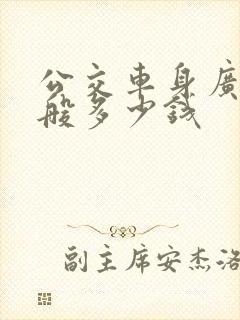 公交車身廣
般多少錢
副主席安杰洛